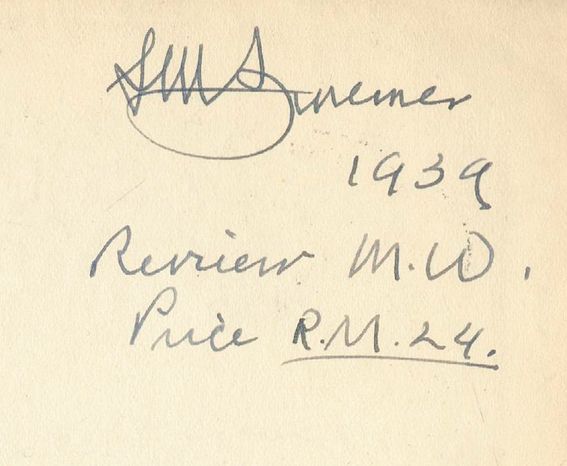 S M Zwemer
1939
Review M.W.
Price R.M.24.